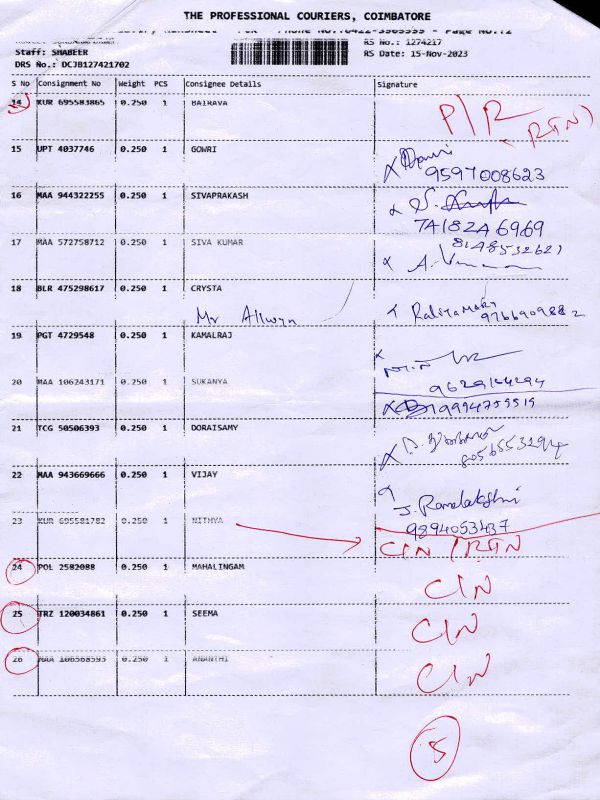 THE PROFESSIONAL COURIERS, COIMBATORE
RS No.: 1274217
Staff: SHABEER
RS Date: 15-Nov-2023
DRS No.: DCJB127421702
S No Consignment No Weight PCS Consignee Details Signature
14 KUR 695583865 0.250 1 BAIRAVA P/R
(RTN)
15 UPT 4037746 0.250 1 GOWRI
9597008623
16 MAA 944322255 0.250 1 SIVAPRAKASH
17 MAA 572758712 0.250 1 SIVA KUMAR
18 BLR 475298617 0.250 1 CRYSTA
Mr Allwyn
19 PGT 4729548 0.250 1 KAMALRAJ
20 MAA 106243171 0.250 1 SUKANYA
21 TCG 50506393 0.250 1 DORAISAMY
22 MAA 943669666 0.250 1 VIJAY
J. Ramalakshmi
9894053437
23 KUR 695581782 0.250 1 NITHYA
CIN / RTN
24 POL 2582088 0.250 1 MAHALINGAM
CIN
25 TRZ 120034861 0.250 1 SEEMA
CIN
26 MAA 106568593 0.250 1 ANANTHI
CIN
5